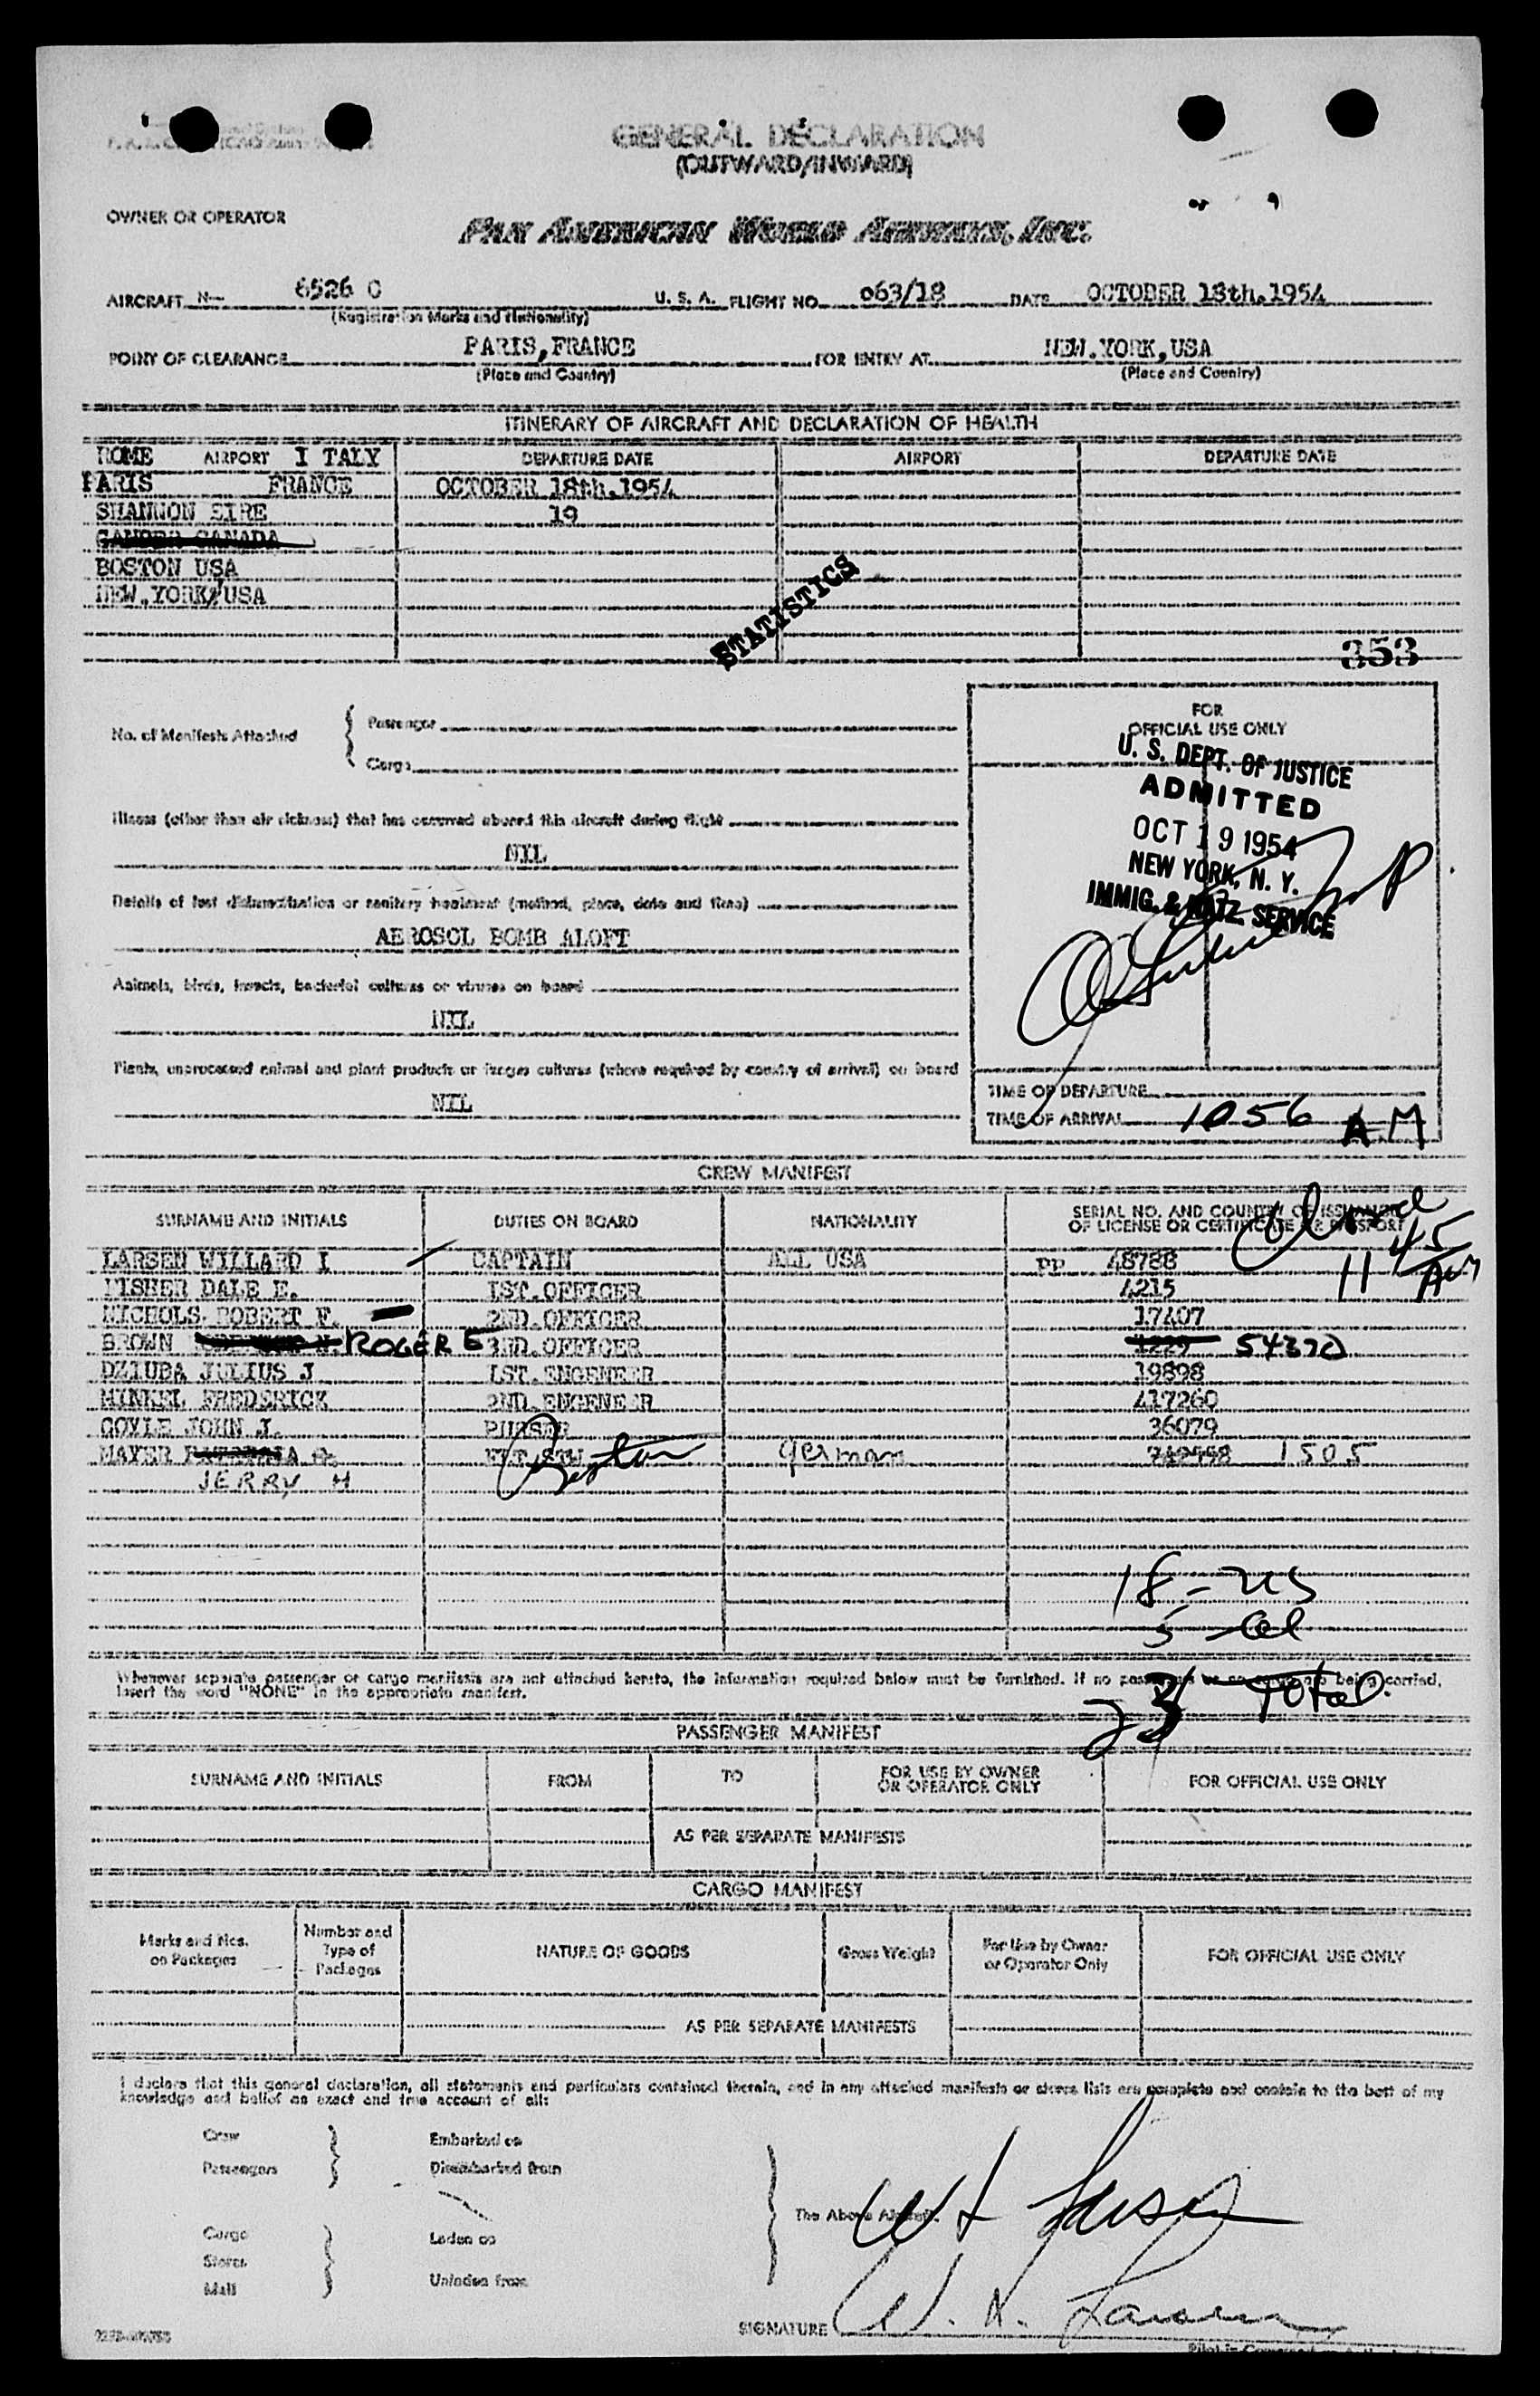 GENERAL DECLARATION
(OUTWARD/INWARD)
OWNER OR OPERATOR
PAN AMERICAN WORLD AIRWAYS, INC.
AIRCRAFT N— 6526 C U. S. A. FLIGHT NO. 063/18 DATE OCTOBER 18th.1954
(Registration Marks and Nationality)
POINT OF CLEARANCE PARIS,FRANCE FOR ENTRY AT NEW.YORK,USA
(Place and Country) (Place and Country)
ITINERARY OF AIRCRAFT AND DECLARATION OF HEALTH
ROME AIRPORT I TALY DEPARTURE DATE AIRPORT DEPARTURE DATE
PARIS FRANCE OCTOBER 18th.1954
SHANNON EIRE 19
GANDER CANADA
BOSTON USA
NEW.YORK,USA
STATISTICS
353
No. of Manifests Attached
Passenger
Cargo
FOR
OFFICIAL USE ONLY
U. S. DEPT. OF JUSTICE
ADMITTED
OCT 19 1954
NEW YORK, N. Y.
IMMIG. & NATZ. SERVICE
Illness (other than air sickness) that has occurred aboard this aircraft during flight
NIL
Details of last disinsectization or sanitary treatment (method, place, date and time)
AEROSOL BOMB ALOFT
Animals, birds, insects, bacterial cultures or viruses on board
NIL
Plants, unprocessed animal and plant products or fungus cultures (where required by country of arrival) on board
NIL
TIME OF DEPARTURE
TIME OF ARRIVAL 1056 AM
CREW MANIFEST
SURNAME AND INITIALS DUTIES ON BOARD NATIONALITY SERIAL NO. AND COUNTRY OF ISSUANCE
OF LICENSE OR CERTIFICATE OR PASSPORT
11 45 AM
LARSEN WILLARD I CAPTAIN ALL USA PP 48788
FISHER DALE E. 1ST.OFFICER 4215
NICHOLS ROBERT F. 2ND.OFFICER 17407
BROWN ROGER E 3RD.OFFICER 1229 54370
DZIUBA JULIUS J 1ST.ENGENEER 19898
HINKEL FREDERICK 2ND.ENGENEER 417260
COYLE JOHN J. PURSER 36079
MAYER PATRICIA A. german 1505
JERRY H
18 - US
5 - al
23 Total
Whenever separate passenger or cargo manifests are not attached hereto, the information required below must be furnished. If no passengers or no cargo are being carried,
insert the word "NONE" in the appropriate manifest.
PASSENGER MANIFEST
SURNAME AND INITIALS FROM TO FOR USE BY OWNER
OR OPERATOR ONLY FOR OFFICIAL USE ONLY
AS PER SEPARATE MANIFESTS
CARGO MANIFEST
Marks and Nos.
on Packages Number and
Type of
Packages NATURE OF GOODS Gross Weight For Use by Owner
or Operator Only FOR OFFICIAL USE ONLY
AS PER SEPARATE MANIFESTS
I declare that this general declaration, all statements and particulars contained therein, and in any attached manifests or stores lists are complete and contain to the best of my
knowledge and belief an exact and true account of all:
Crew Embarked on
Passengers Disembarked from
The Above Aircraft.
Cargo Laden on
Stores
Mail Unladen from
SIGNATURE W. I. Larsen